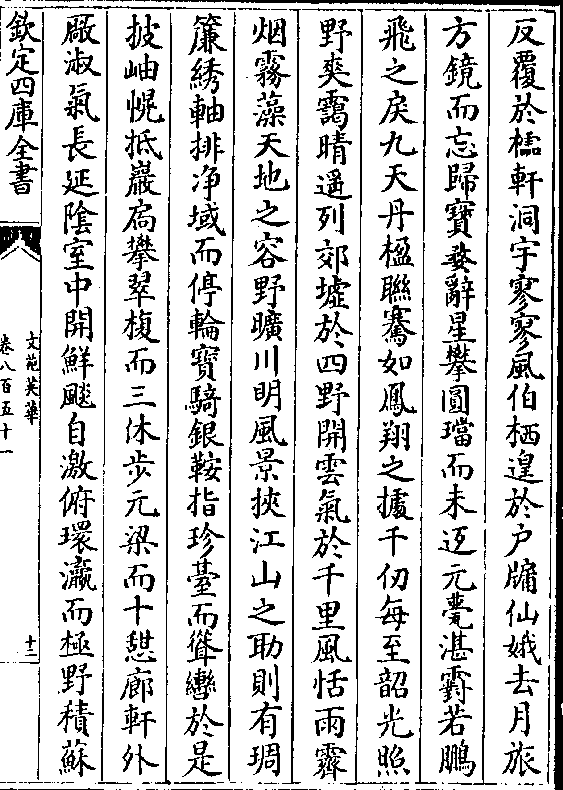 反覆於櫺軒洞宇寥寥風伯栖遑於户牖仙娥去月旅
方鏡而忘歸寶婺辭星攀圓璫而未返元甍湛霨若鵬
飛之戾九天丹楹聯騫如鳳翔之據千仞每至韶光照
野爽靄晴遥列郊墟於四野開雲氣於千里風恬雨霽
烟霧藻天地之容野曠川明風景挾江山之助則有琱
簾綉軸排净域而停輪寶騎銀鞍指珍臺而聳轡於是
披岫幌抵巖扃攀翠椱而三休步元梁而十憇廊軒外
厰淑氣長延隂室中開鮮飈自激俯環瀛而極野積蘇
欽定四庫全書
文苑英華
卷八百五十一
十三